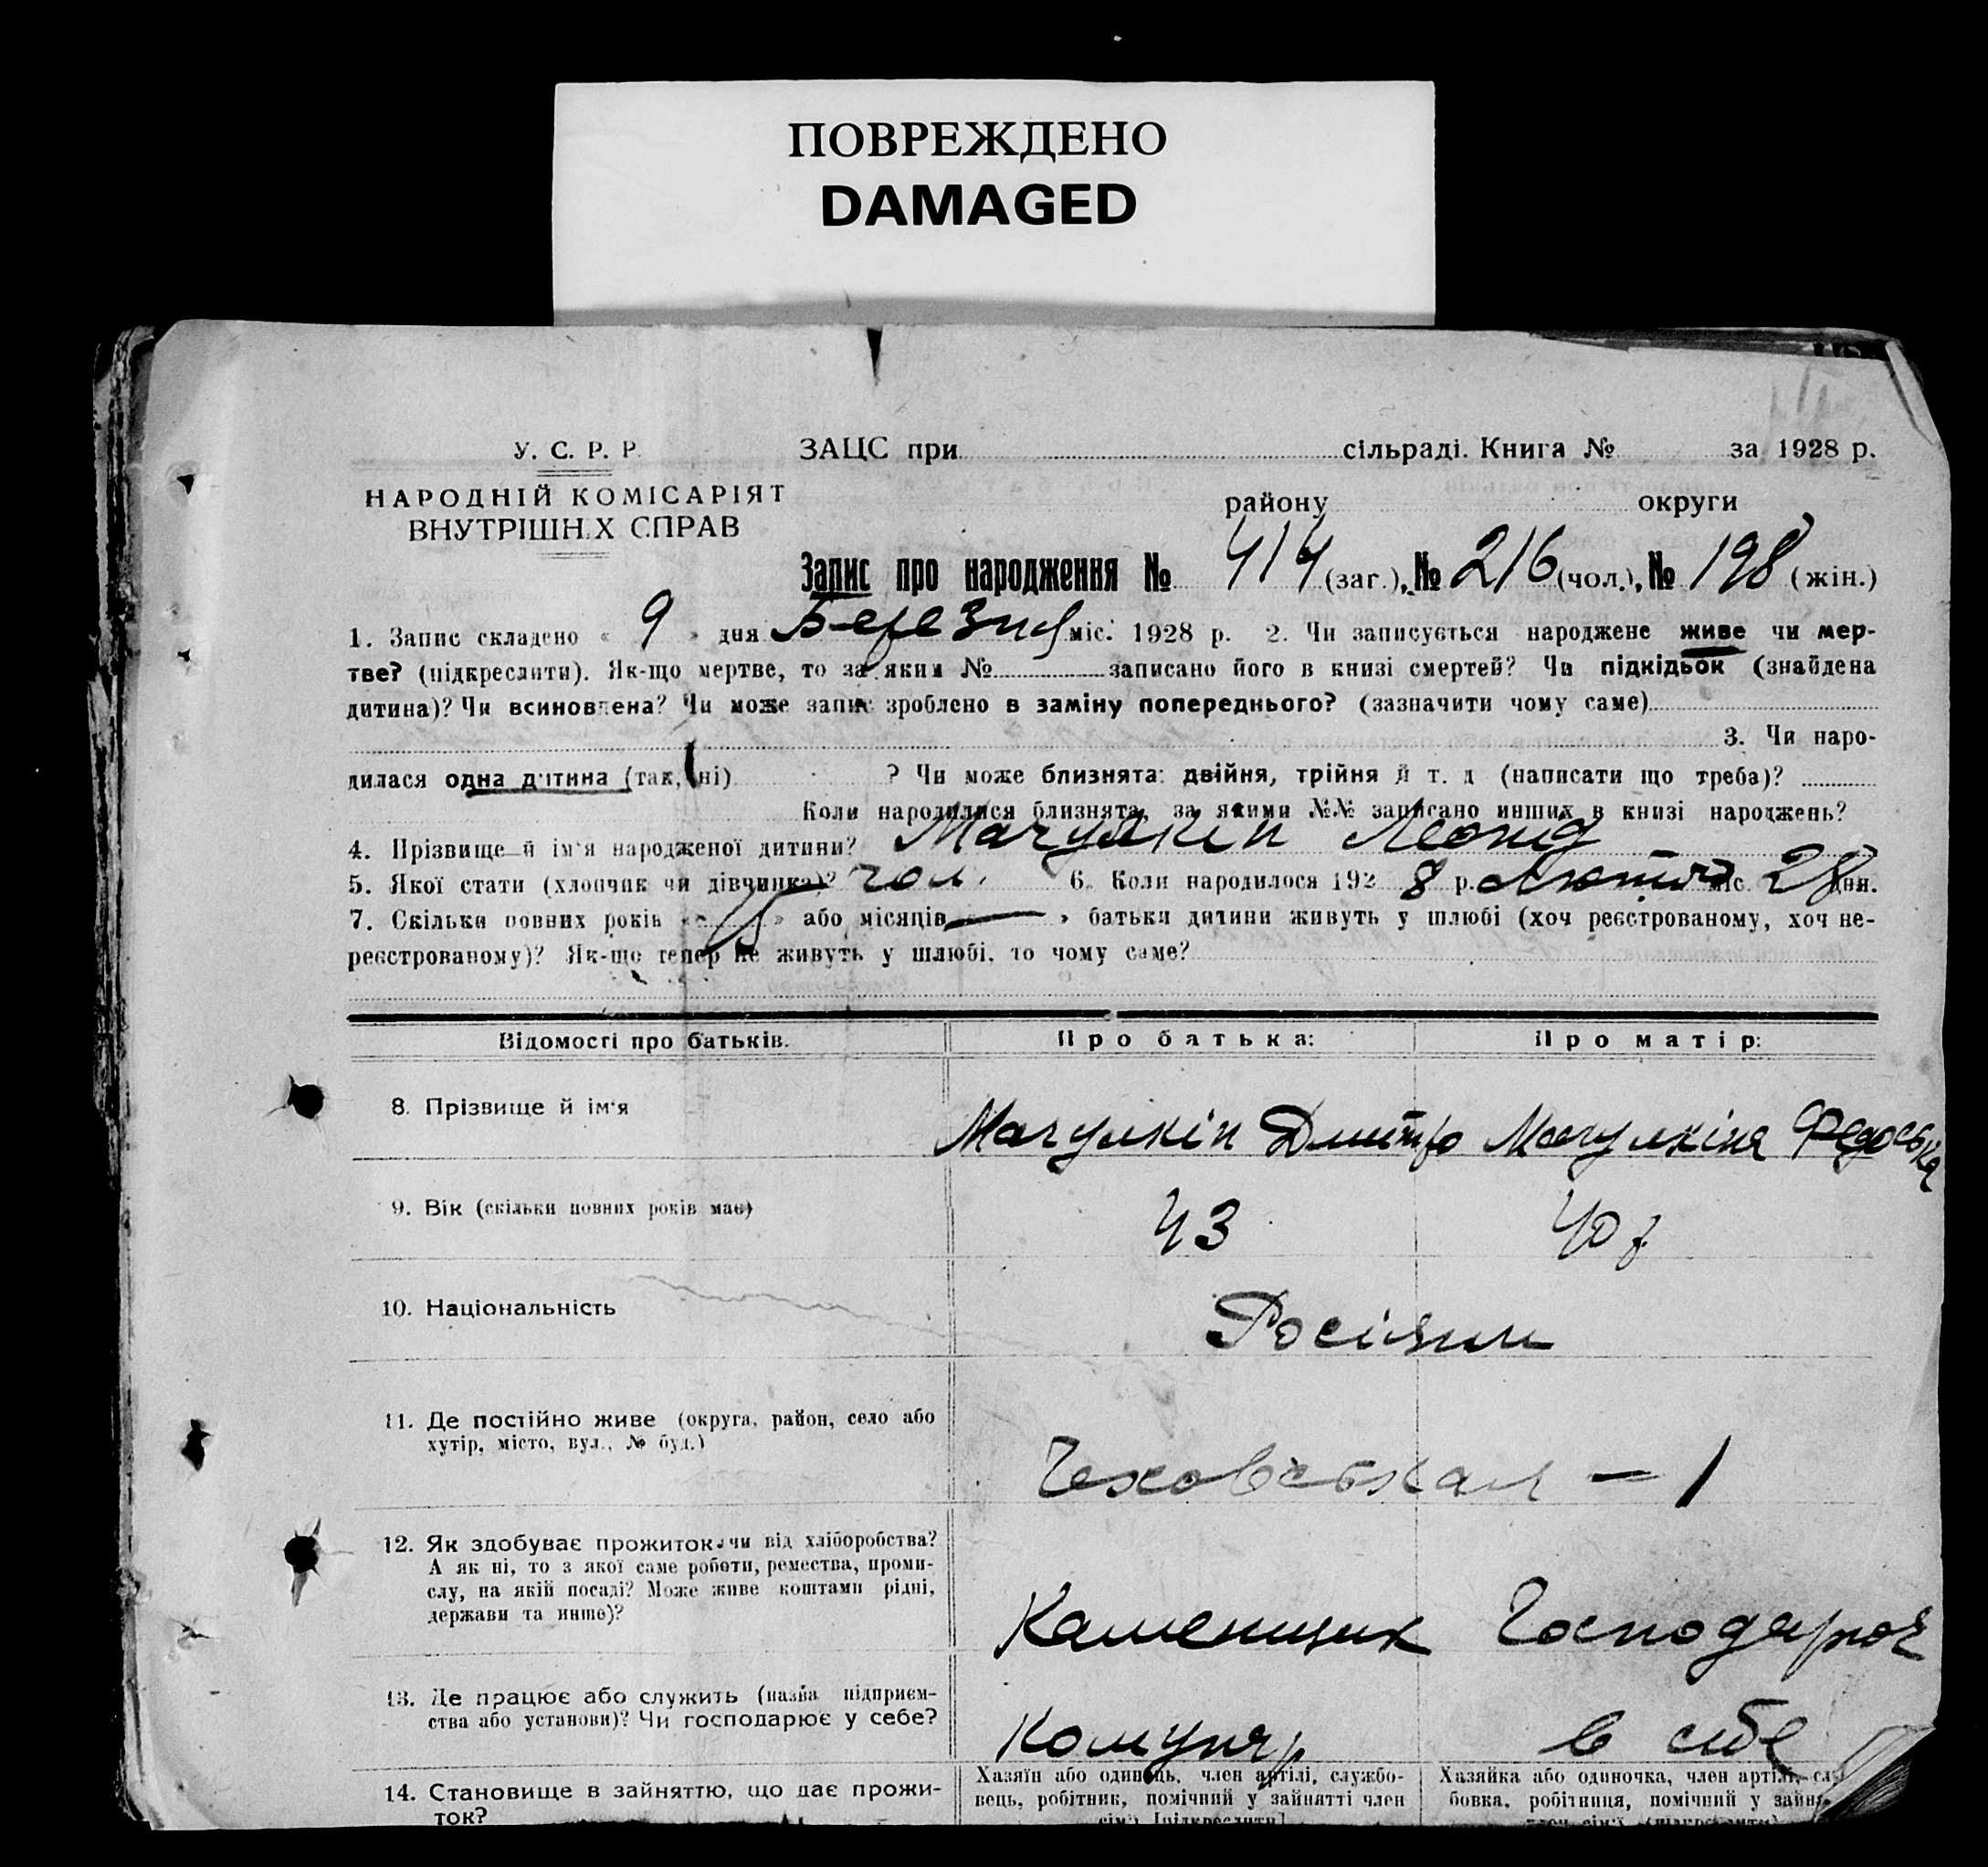 ПОВРЕЖДЕНО
DAMAGED
У. С. Р. Р.
НАРОДНІЙ КОМІСАРІЯТ
ВНУТРІШН.Х СПРАВ
ЗАЦС при сільраді. Книга № за 1928 р.
району округи
Запис про народження № 414 (заг.), № 216 (чол.), № 198 (жін.)
1. Запис складено « 9 » дня Березня міс. 1928 р. 2. Чи записується народжене живе чи мер-
тве? (підкреслити). Як-що мертве, то за яким № записано його в книзі смертей? Чи підкідьок (знайдена
дитина)? Чи всиновлена? Чи може запис зроблено в заміну попереднього? (зазначити чому саме)
3. Чи наро-
дилася одна дитина (так, ні) ? Чи може близнята: двійня, трійня й т. д (написати що треба)?
Коли народилися близнята, за якими №№ записано инших в книзі народжень?
4. Прізвище й ім'я народженої дитини? Мачулкін Леонід
5. Якої стати (хлопчик чи дівчинка)? чол. 6. Коли народилося 192 8 р. Лютого міс. 28 дня.
7. Скільки повних років « » або місяців — » батьки дитини живуть у шлюбі (хоч реєстрованому, хоч не-
реєстрованому)? Як-що тепер не живуть у шлюбі, то чому саме?
Відомості про батьків. Про батька: Про матір:
8. Прізвище й ім'я Мачулкін Дмитро Мачулкіна Федоська
9. Вік (скільки повних років має) 43 40 р.
10. Національність Росіяни
11. Де постійно живе (округа, район, село або
хутір, місто, вул., № буд.)
Чеховськая — 1
12. Як здобуває прожиток: чи від хліборобства?
А як ні, то з якої саме роботи, ремества, проми-
слу, на якій посаді? Може живе коштами рідні,
держави та инше)?
Каменщик Господарює
13. Де працює або служить (назва підприєм-
ства або установи)? Чи господарює у себе?
Комунар в себе
14. Становище в зайняттю, що дає прожи-
ток?
Хазяїн або одинець, член артілі, службо-
вець, робітник, помічний у зайнятті член
сім'ї [підкреслити]
Хазяйка або одиночка, член артілі, сл
бовка, робітниця, помічний у зайня
член сім'ї (підкреслити)